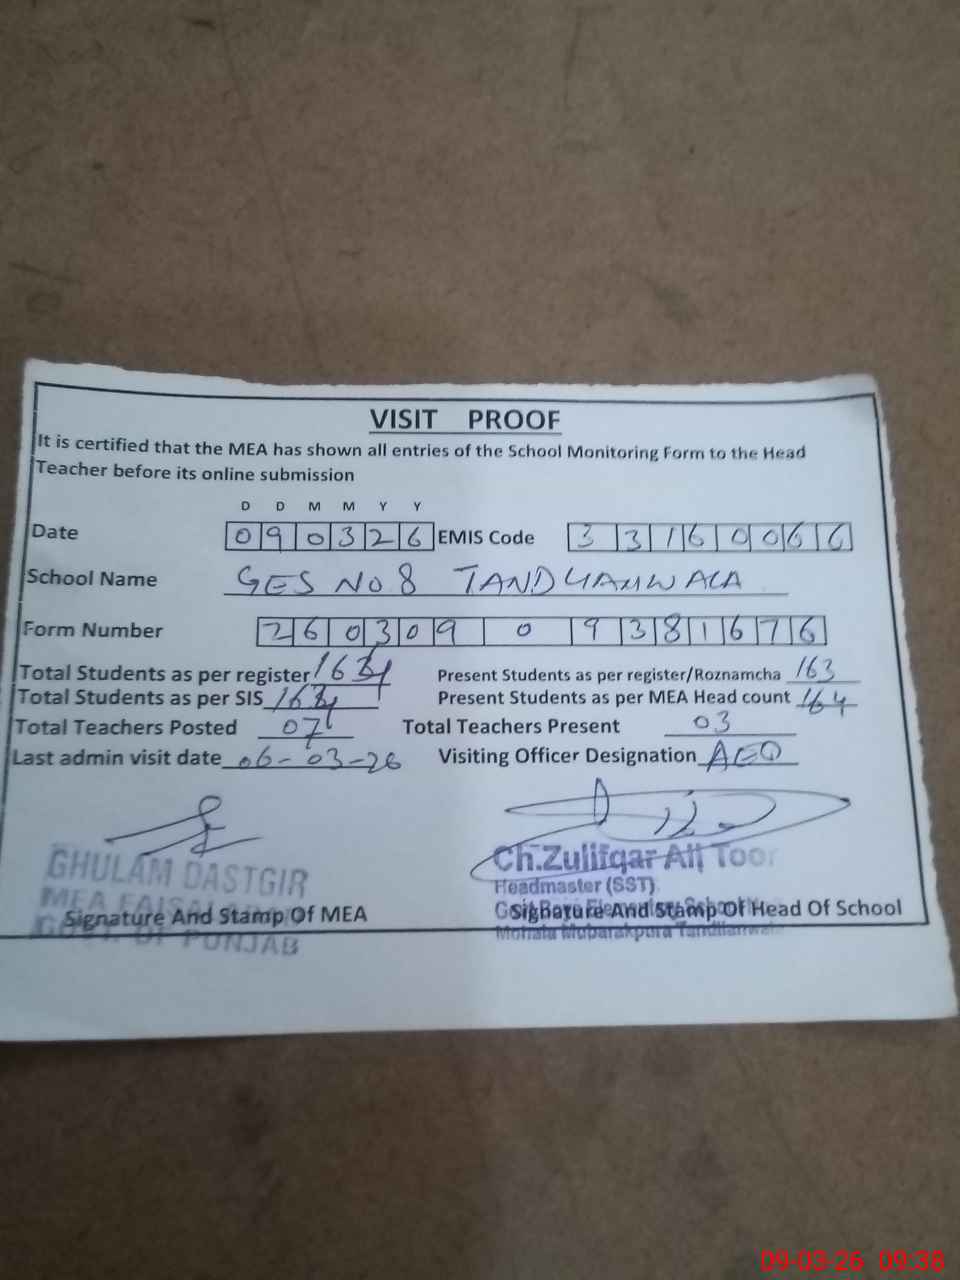 VISIT PROOF
It is certified that the MEA has shown all entries of the School Monitoring Form to the Head
Teacher before its online submission
D D M M Y Y
Date 090326 EMIS Code 33160066
School Name GES NO 8 TANDLIANWALA
Form Number 260309 0 9381676
Total Students as per register Present Students as per register/Roznamcha 163
Total Students as per SIS Present Students as per MEA Head count 164
Total Teachers Posted 07 Total Teachers Present 03
Last admin visit date 06-03-26 Visiting Officer Designation AEO
GHULAM DASTGIR
MEA FAISALABAD
GOVT. OF PUNJAB
Signature And Stamp Of MEA
Ch.Zulifqar Ali Toor
Headmaster (SST)
Signature And Stamp Of Head Of School
Mohala Mubarakpura Tandlianwala
09-03-26 09:38